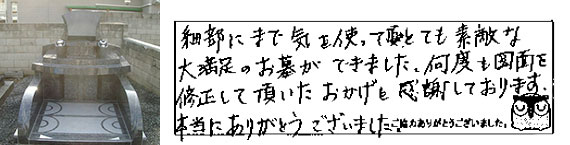 細部にまで気を使って頂とても素敵な
大満足のお墓ができました。何度も図面を
修正して頂いたおかげと感謝しております。
本当にありがとうございました。
ご協力ありがとうございました。